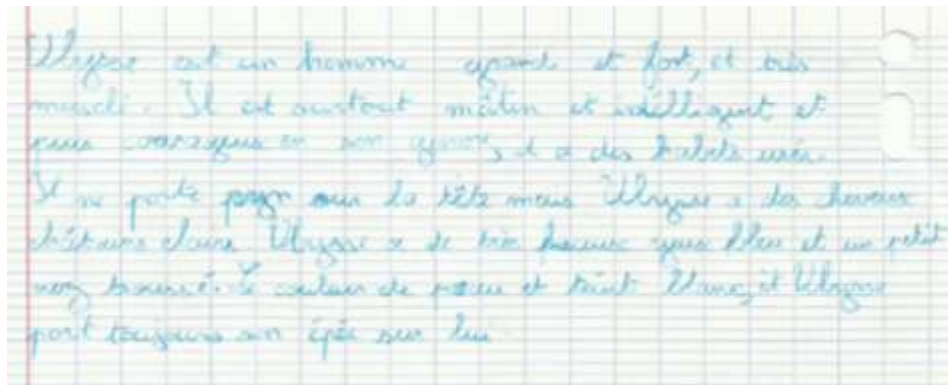 Ulysse est un homme grand et fort, et très
musclé. Il est surtout malin et intelligent et
courageux en son genre, il a des habits usés.
Il ne porte sur la tête mais Ulysse a des cheveux
châtains claire Ulysse a de très beaux yeux bleu et un petit
nez troussé. couleur de peau et teint blanc, et Ulysse
port toujours son épée sur lui